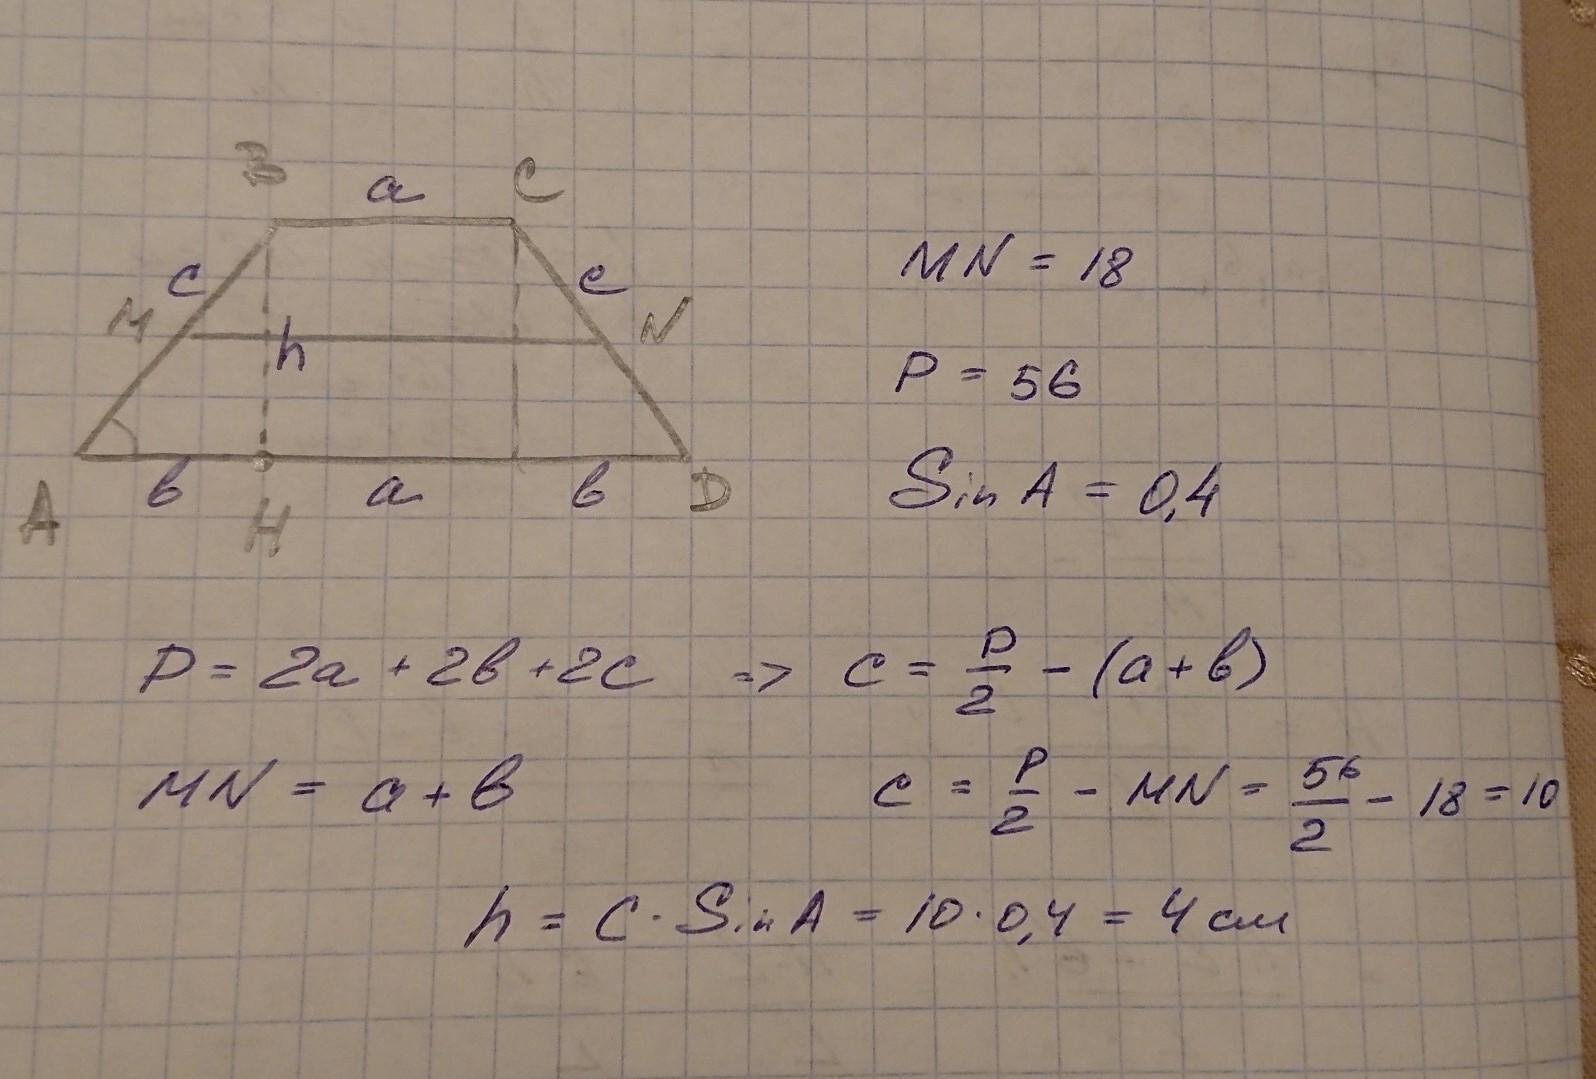 B a C
c c
MN = 18
M h N
P = 56
A b H a b D
Sin A = 0,4
P = 2a + 2b + 2c => c = P/2 - (a + b)
MN = a + b
c = P/2 - MN = 56/2 - 18 = 10
h = c · Sin A = 10 · 0,4 = 4 см